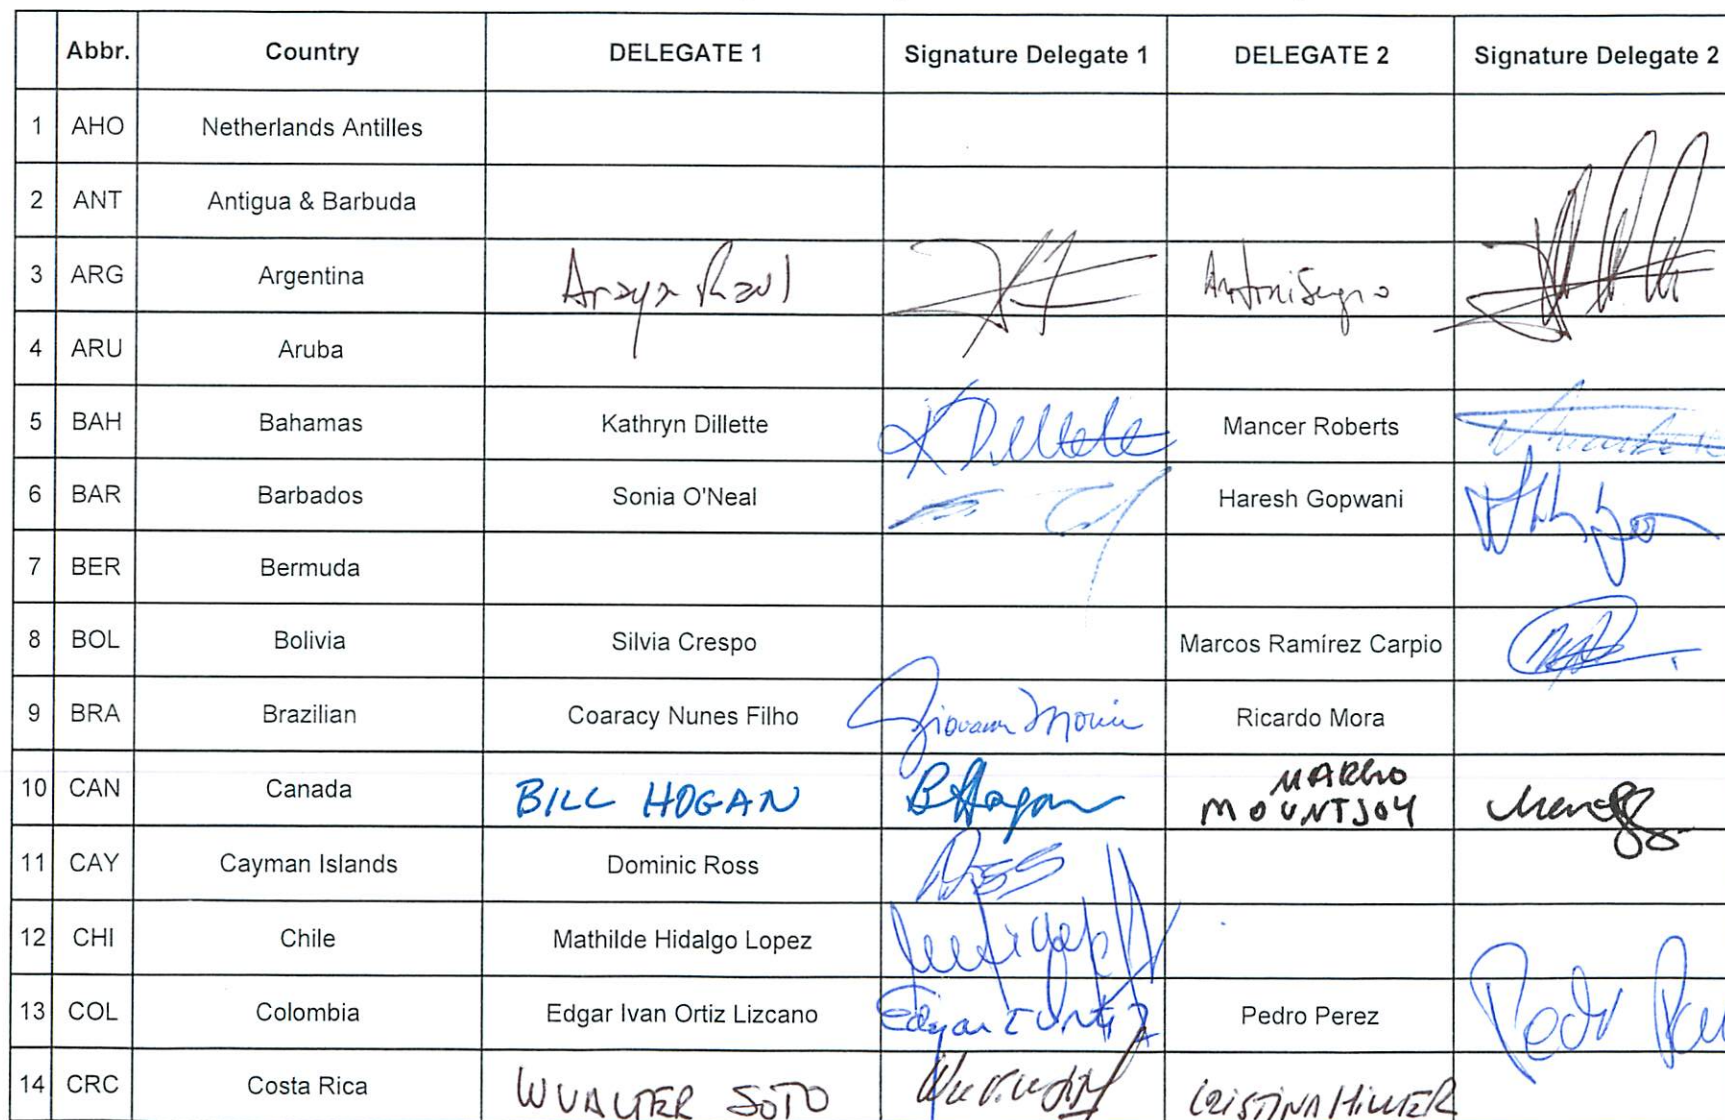 Abbr. Country DELEGATE 1 Signature Delegate 1 DELEGATE 2 Signature Delegate 2
1 AHO Netherlands Antilles
2 ANT Antigua & Barbuda
3 ARG Argentina Araya Raul
4 ARU Aruba
5 BAH Bahamas Kathryn Dillette K Dillette Mancer Roberts
6 BAR Barbados Sonia O'Neal Haresh Gopwani
7 BER Bermuda
8 BOL Bolivia Silvia Crespo Marcos Ramírez Carpio
9 BRA Brazilian Coaracy Nunes Filho Ricardo Mora
10 CAN Canada BILL HOGAN BHogan MARGO MOUNTJOY
11 CAY Cayman Islands Dominic Ross
12 CHI Chile Mathilde Hidalgo Lopez
13 COL Colombia Edgar Ivan Ortiz Lizcano Edgar I Ortiz Pedro Perez Pedro
14 CRC Costa Rica WUALTER SOTO